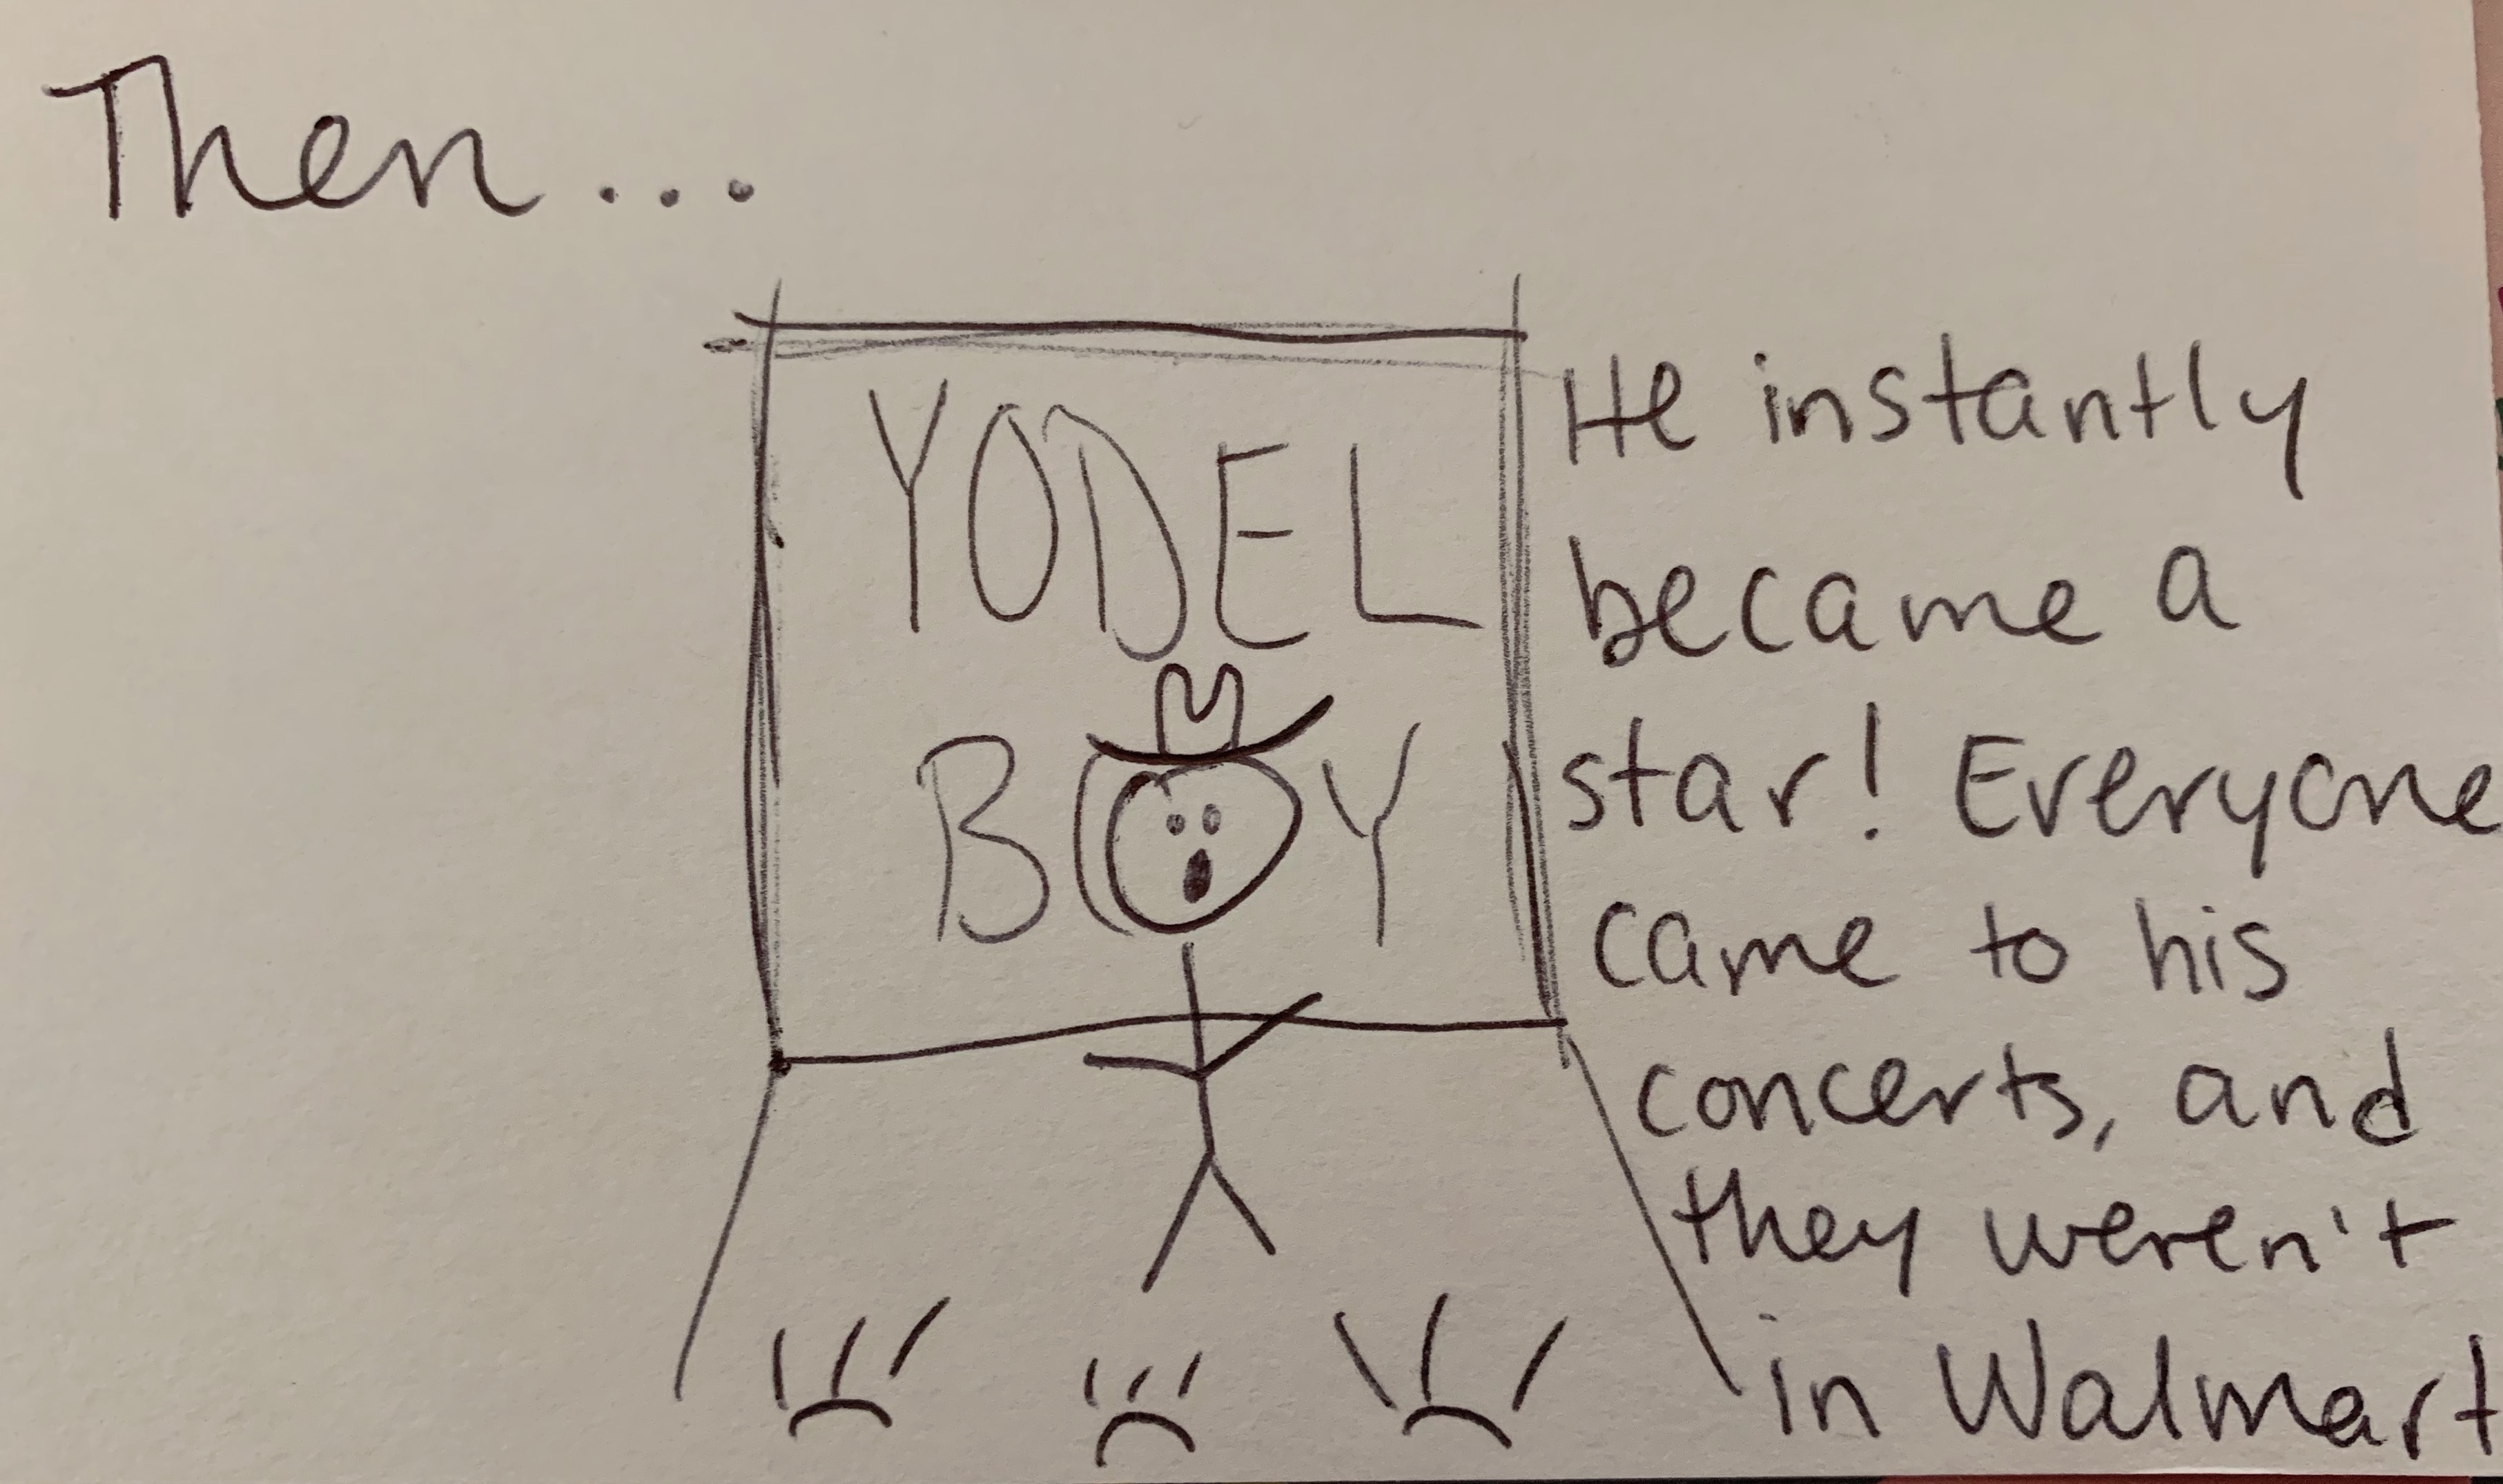 Then...
YODEL
BOY
He instantly
became a
star! Everyone
came to his
concerts, and
they weren't
in Walmart